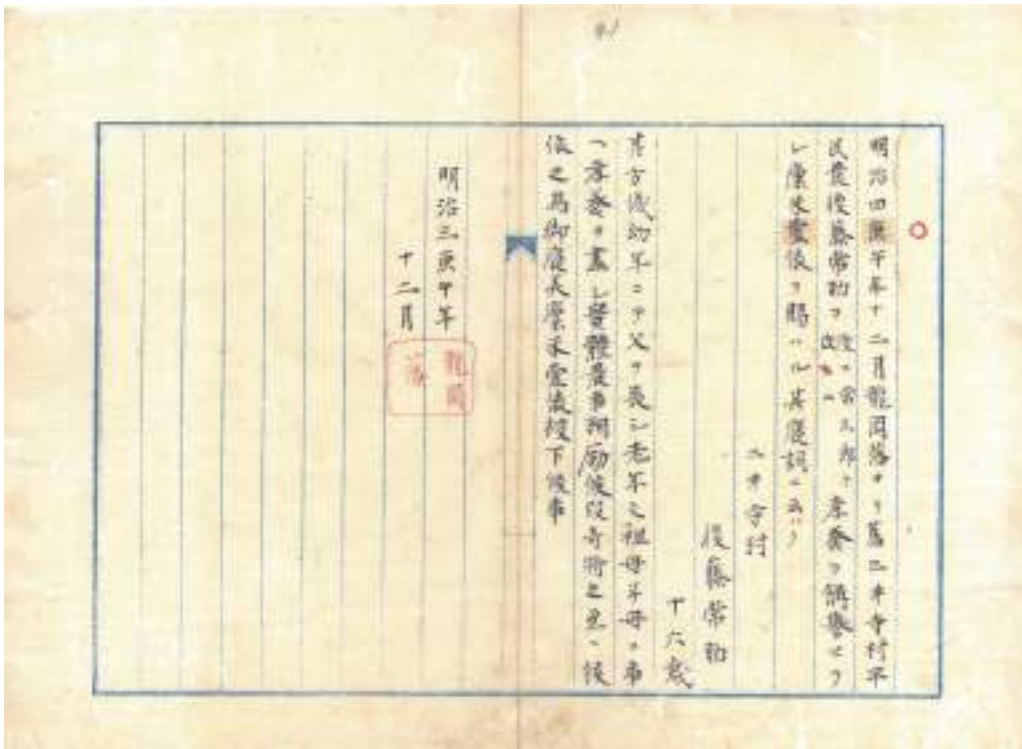 明治四庚午年十二月龍岡藩ヨリ舊三井寺村平
民農後藤常助ヲ後ニ常三郎ト改ム孝養ヲ
シ 米壹俵ヲ賜ハル其褒詞ニ云ハク
後藤常助
十六歳
其方儀幼年ニテ父ヲ喪シ老年之祖母并母ニ事
ヘ孝養ヲ盡シ 農事相励候段奇特之至ニ候
依之為御褒美 米壹俵被下候事
明治三庚午年
十二月
龍岡藩